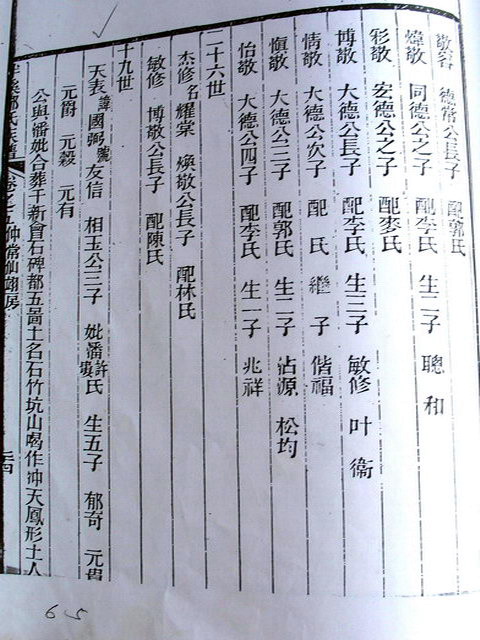 敬容 德常公長子 配郭氏
煒敬 同德公之子 配李氏 生二子 聰 和
彩敬 宏德公之子 配麥氏
博敬 大德公長子 配李氏 生三子 敏修 叶 衞
情敬 大德公次子 配 氏 繼 子 偕福
愼敬 大德公三子 配郭氏 生二子 沾源 松均
怡敬 大德公四子 配李氏 生一子 兆祥
二十六世
杰修 名耀棠 煥敬公長子 配林氏
敏修 博敬公長子 配陳氏
十九世
天表 諱國弼 號友信 相玉公三子 妣潘許氏 生五子 郁奇 元貴
元爵 元毅 元有
公與潘妣合葬于新會石碑都五啚土名石竹坑山喝作冲天鳳形土人
65